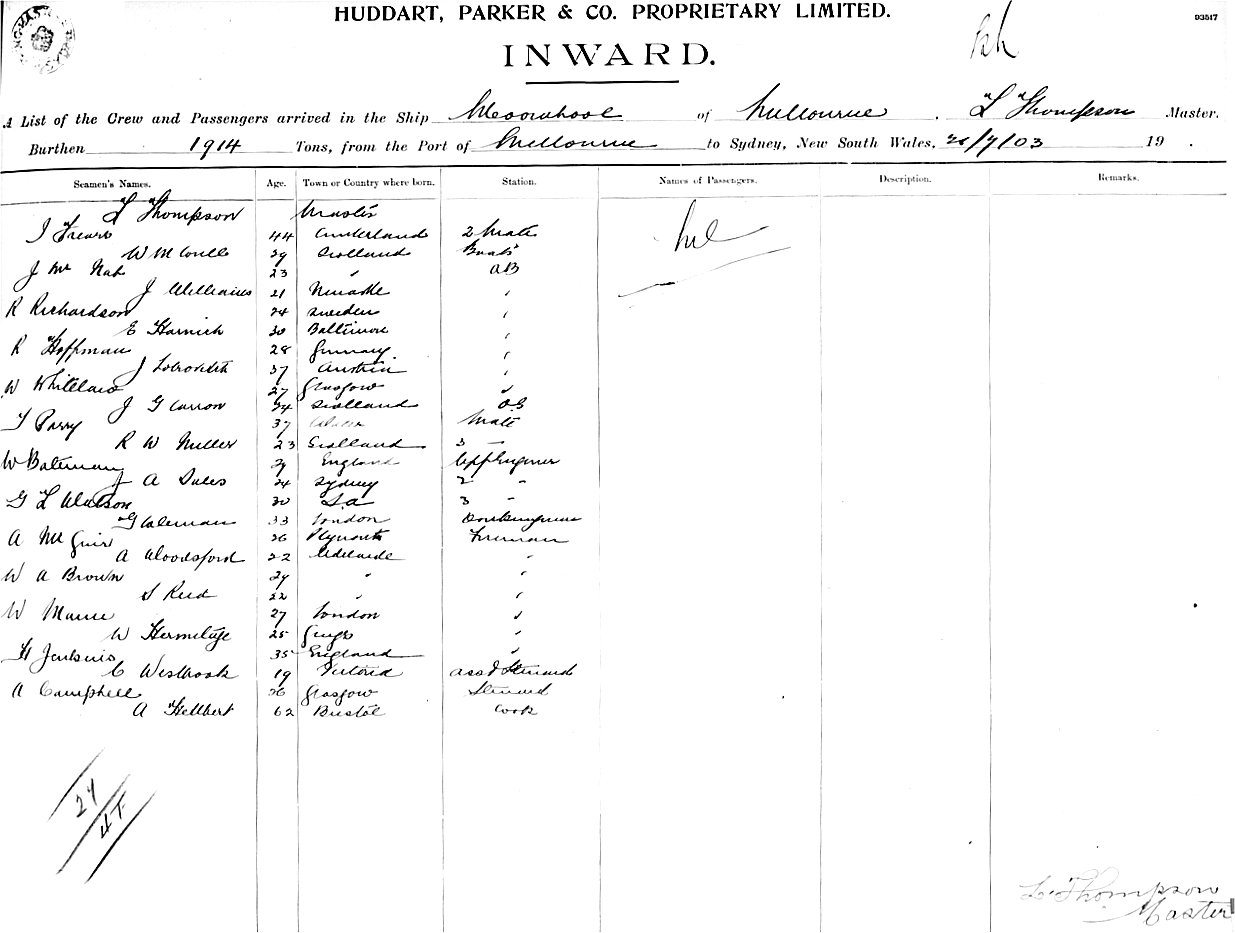 HUDDART, PARKER & CO. PROPRIETARY LIMITED.
93517
INWARD.
A List of the Crew and Passengers arrived in the Ship of Melbourne . L Thompson Master.
Burthen 1914 Tons, from the Port of Melbourne to Sydney, New South Wales, /7/03 19 .
Seamen's Names. Age. Town or Country where born. Station. Names of Passengers. Description. Remarks.
L Thompson Master
J 44 Cumberland 2 Mate
W 29 Scotland
J Mc Nab 23 " AB
J Williams 21 "
R Richardson 24 Sweden "
E Harnich 30 Baltimore "
R Hoffman 28 Germany "
J 37 Austria "
W Whitelaw 27 Glasgow "
J G Carron 24 Scotland OS
T Parry 37 Mate
R W Miller 23 Scotland 3 "
W Bateman 29 England
J A 24 Sydney 2 "
G L Watson 30 S.A 3 "
G Coleman 33 London
A McGuir 26 Plymouth Fireman
A Woodsford 22 Adelaide "
W A Brown 29 " "
S Reid 22 " "
W 27 London "
W Hermitage 25 "
H Jenkins 35 England "
C Westbrook 19 Victoria Steward
A Campbell 26 Glasgow Steward
A Hellbert 62 Bristol Cook
L. Thompson
Master